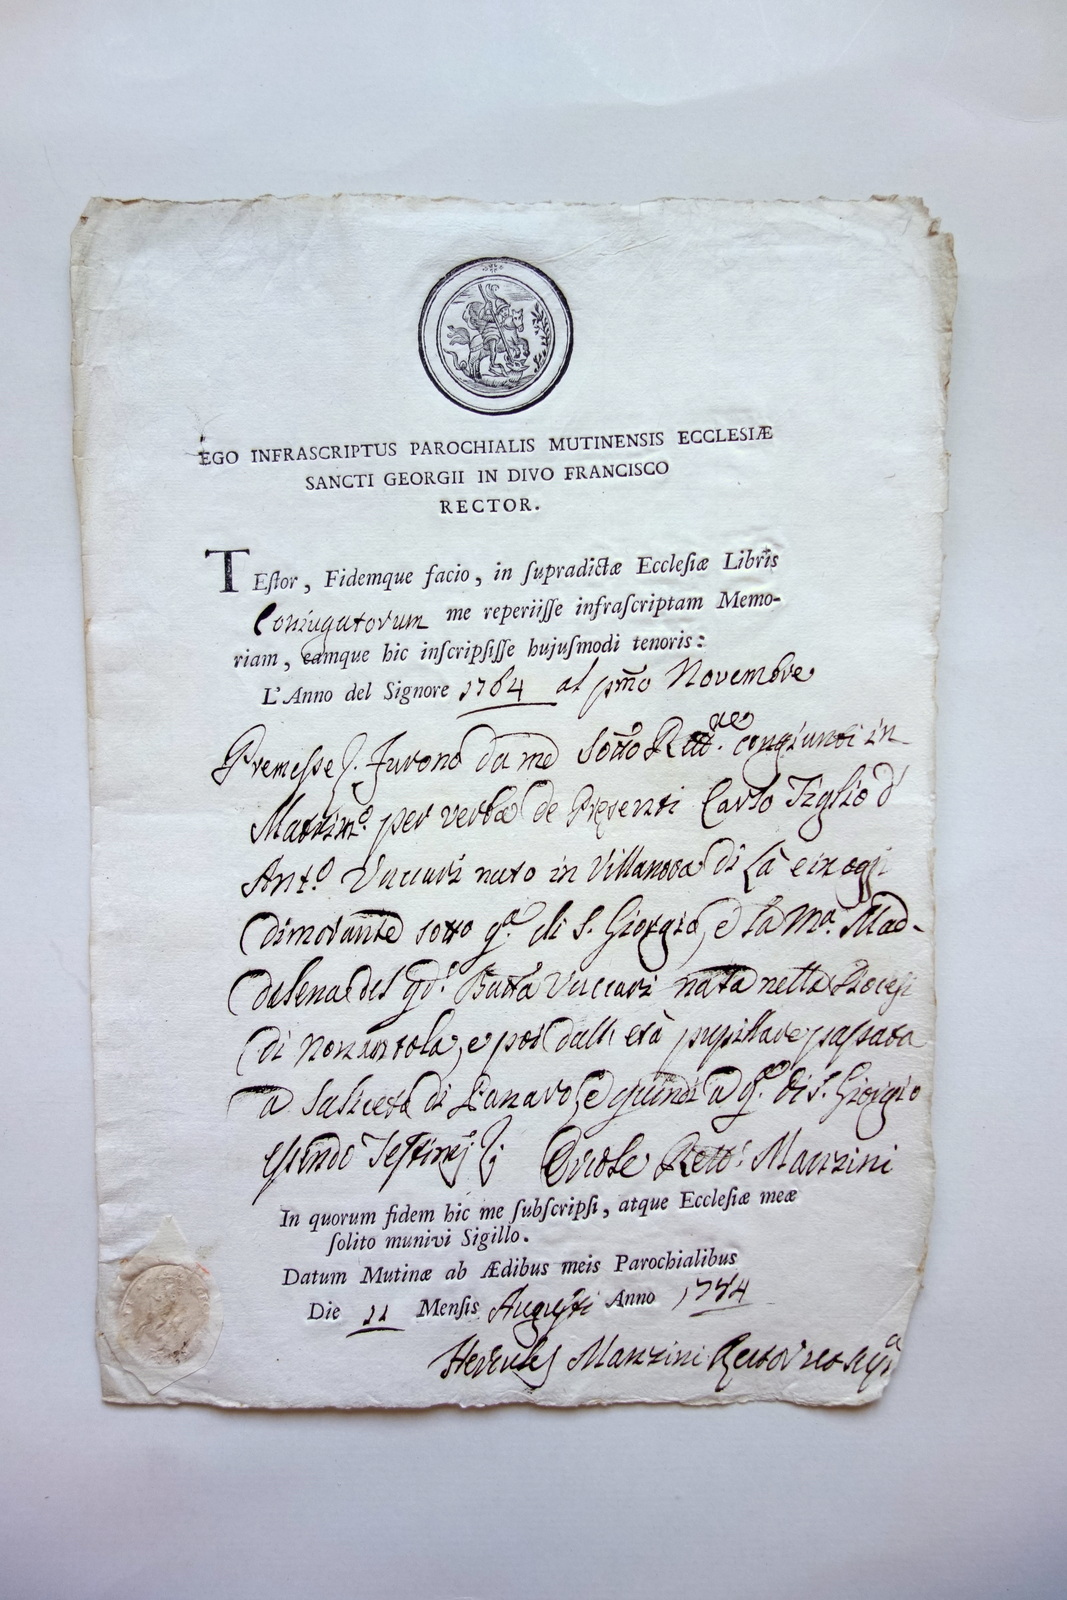 EGO INFRASCRIPTUS PAROCHIALIS MUTINENSIS ECCLESIÆ
SANCTI GEORGII IN DIVO FRANCISCO
RECTOR.
TEſtor, Fidemque facio, in ſupradictæ Eccleſiæ Libris
Conjugatorum me reperiiſſe infraſcriptam Memo-
riam, eamque hic inſcripſiſſe hujuſmodi tenoris:
L'Anno del Signore 1764 al pmo Novembre
Premesse Furono da me Sotto Rett.e congiunti in
Matrim.o per verba de Presenti Carlo Figlio d'
Ant.o Vaccari nato in Villanova di Là ed oggi
dimorante sotto q.a di S. Giorgio, e la M.a Mad-
dalena del qd. Batta Vaccari nata nella Diocesi
di Nonantola, e poi dall età pupillare passata
a Saliceta di Panaro, e quindi a q.a di S. Giorgio
essendo Testimj Ercole Rett.e Manzini
In quorum fidem hic me ſubſcripſi, atque Eccleſiæ meæ
ſolito munivi Sigillo.
Datum Mutinæ ab Ædibus meis Parochialibus
Die 11 Menſis Augusti Anno 1784
Hercules Manzini Rector